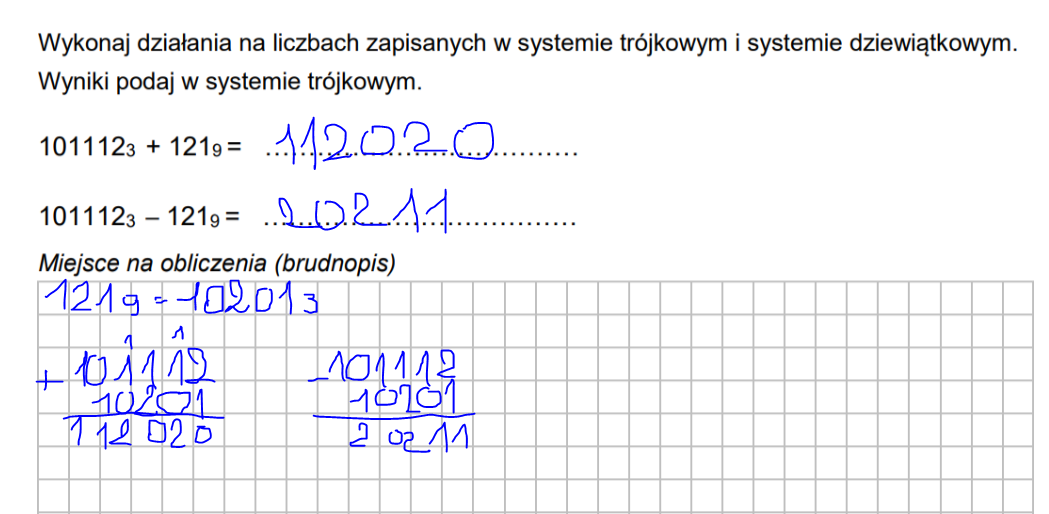 Wykonaj działania na liczbach zapisanych w systemie trójkowym i systemie dziewiątkowym.
Wyniki podaj w systemie trójkowym.
101112₃ + 121₉ = 112020
101112₃ – 121₉ = 20211
Miejsce na obliczenia (brudnopis)
121₉ = 10201₃
1 1
+ 101112 - 101112
10201 10201
112020 20211